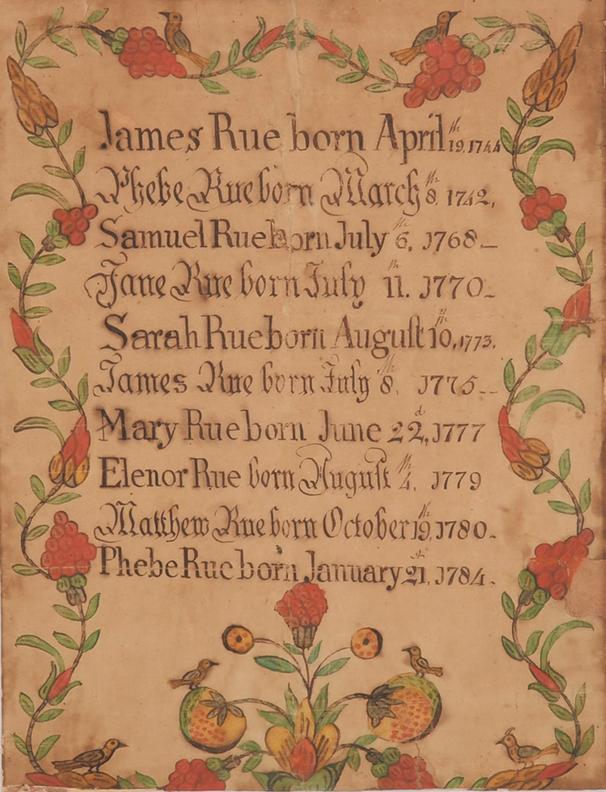 James Rue born April 19th, 1744
Phebe Rue born March 8th, 1742,
Samuel Rue born July 6th, 1768
Jane Rue born July 11th, 1770
Sarah Rue born August 10th, 1773,
James Rue born July 8th, 1775
Mary Rue born June 22d, 1777
Elenor Rue born August 4th, 1779
Matthew Rue born October 19th, 1780
Phebe Rue born January 21st, 1784